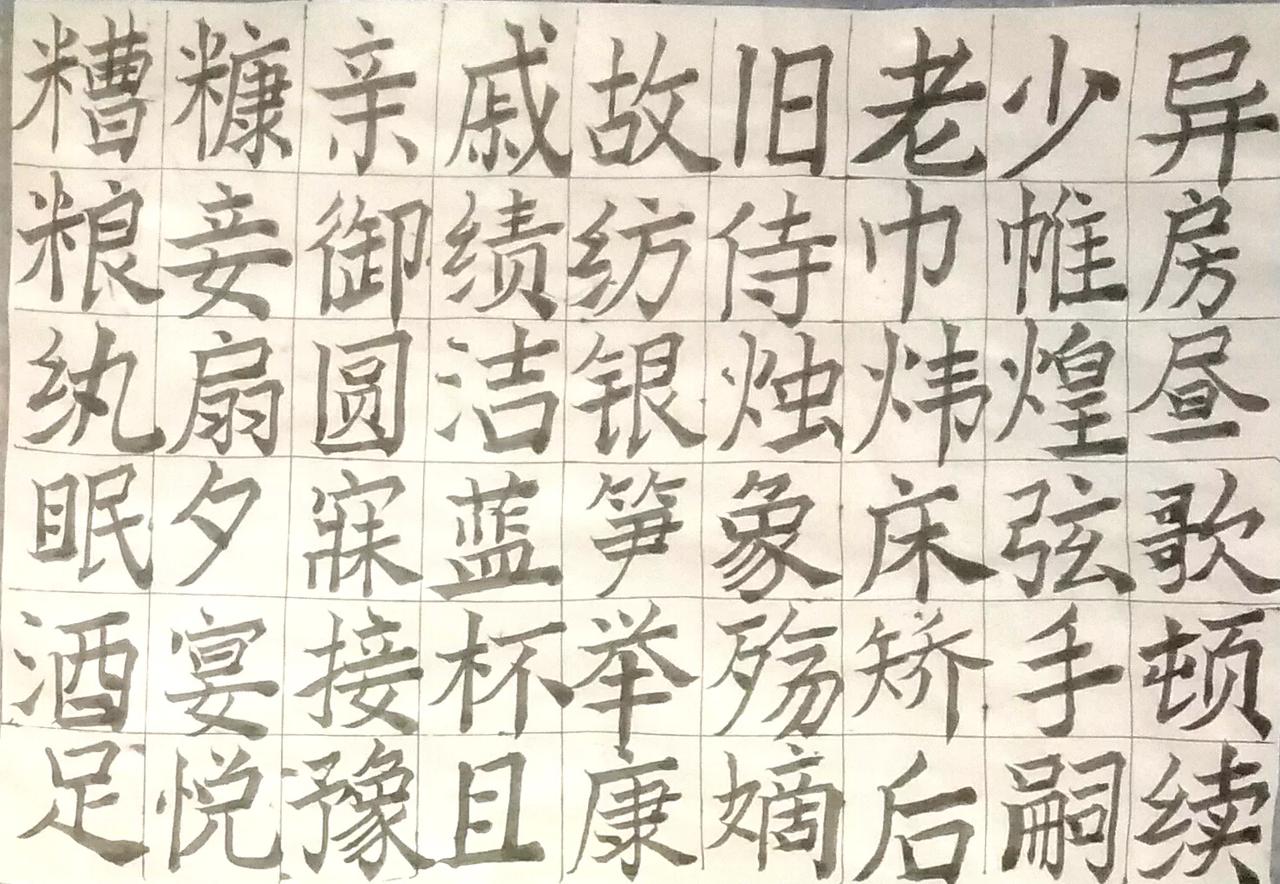 糟糠亲戚故旧老少异
粮妾御绩纺侍巾帷房
纨扇圆洁银烛炜煌昼
眠夕寐蓝笋象床弦歌
酒宴接杯举殇矫手顿
足悦豫且康嫡后嗣续